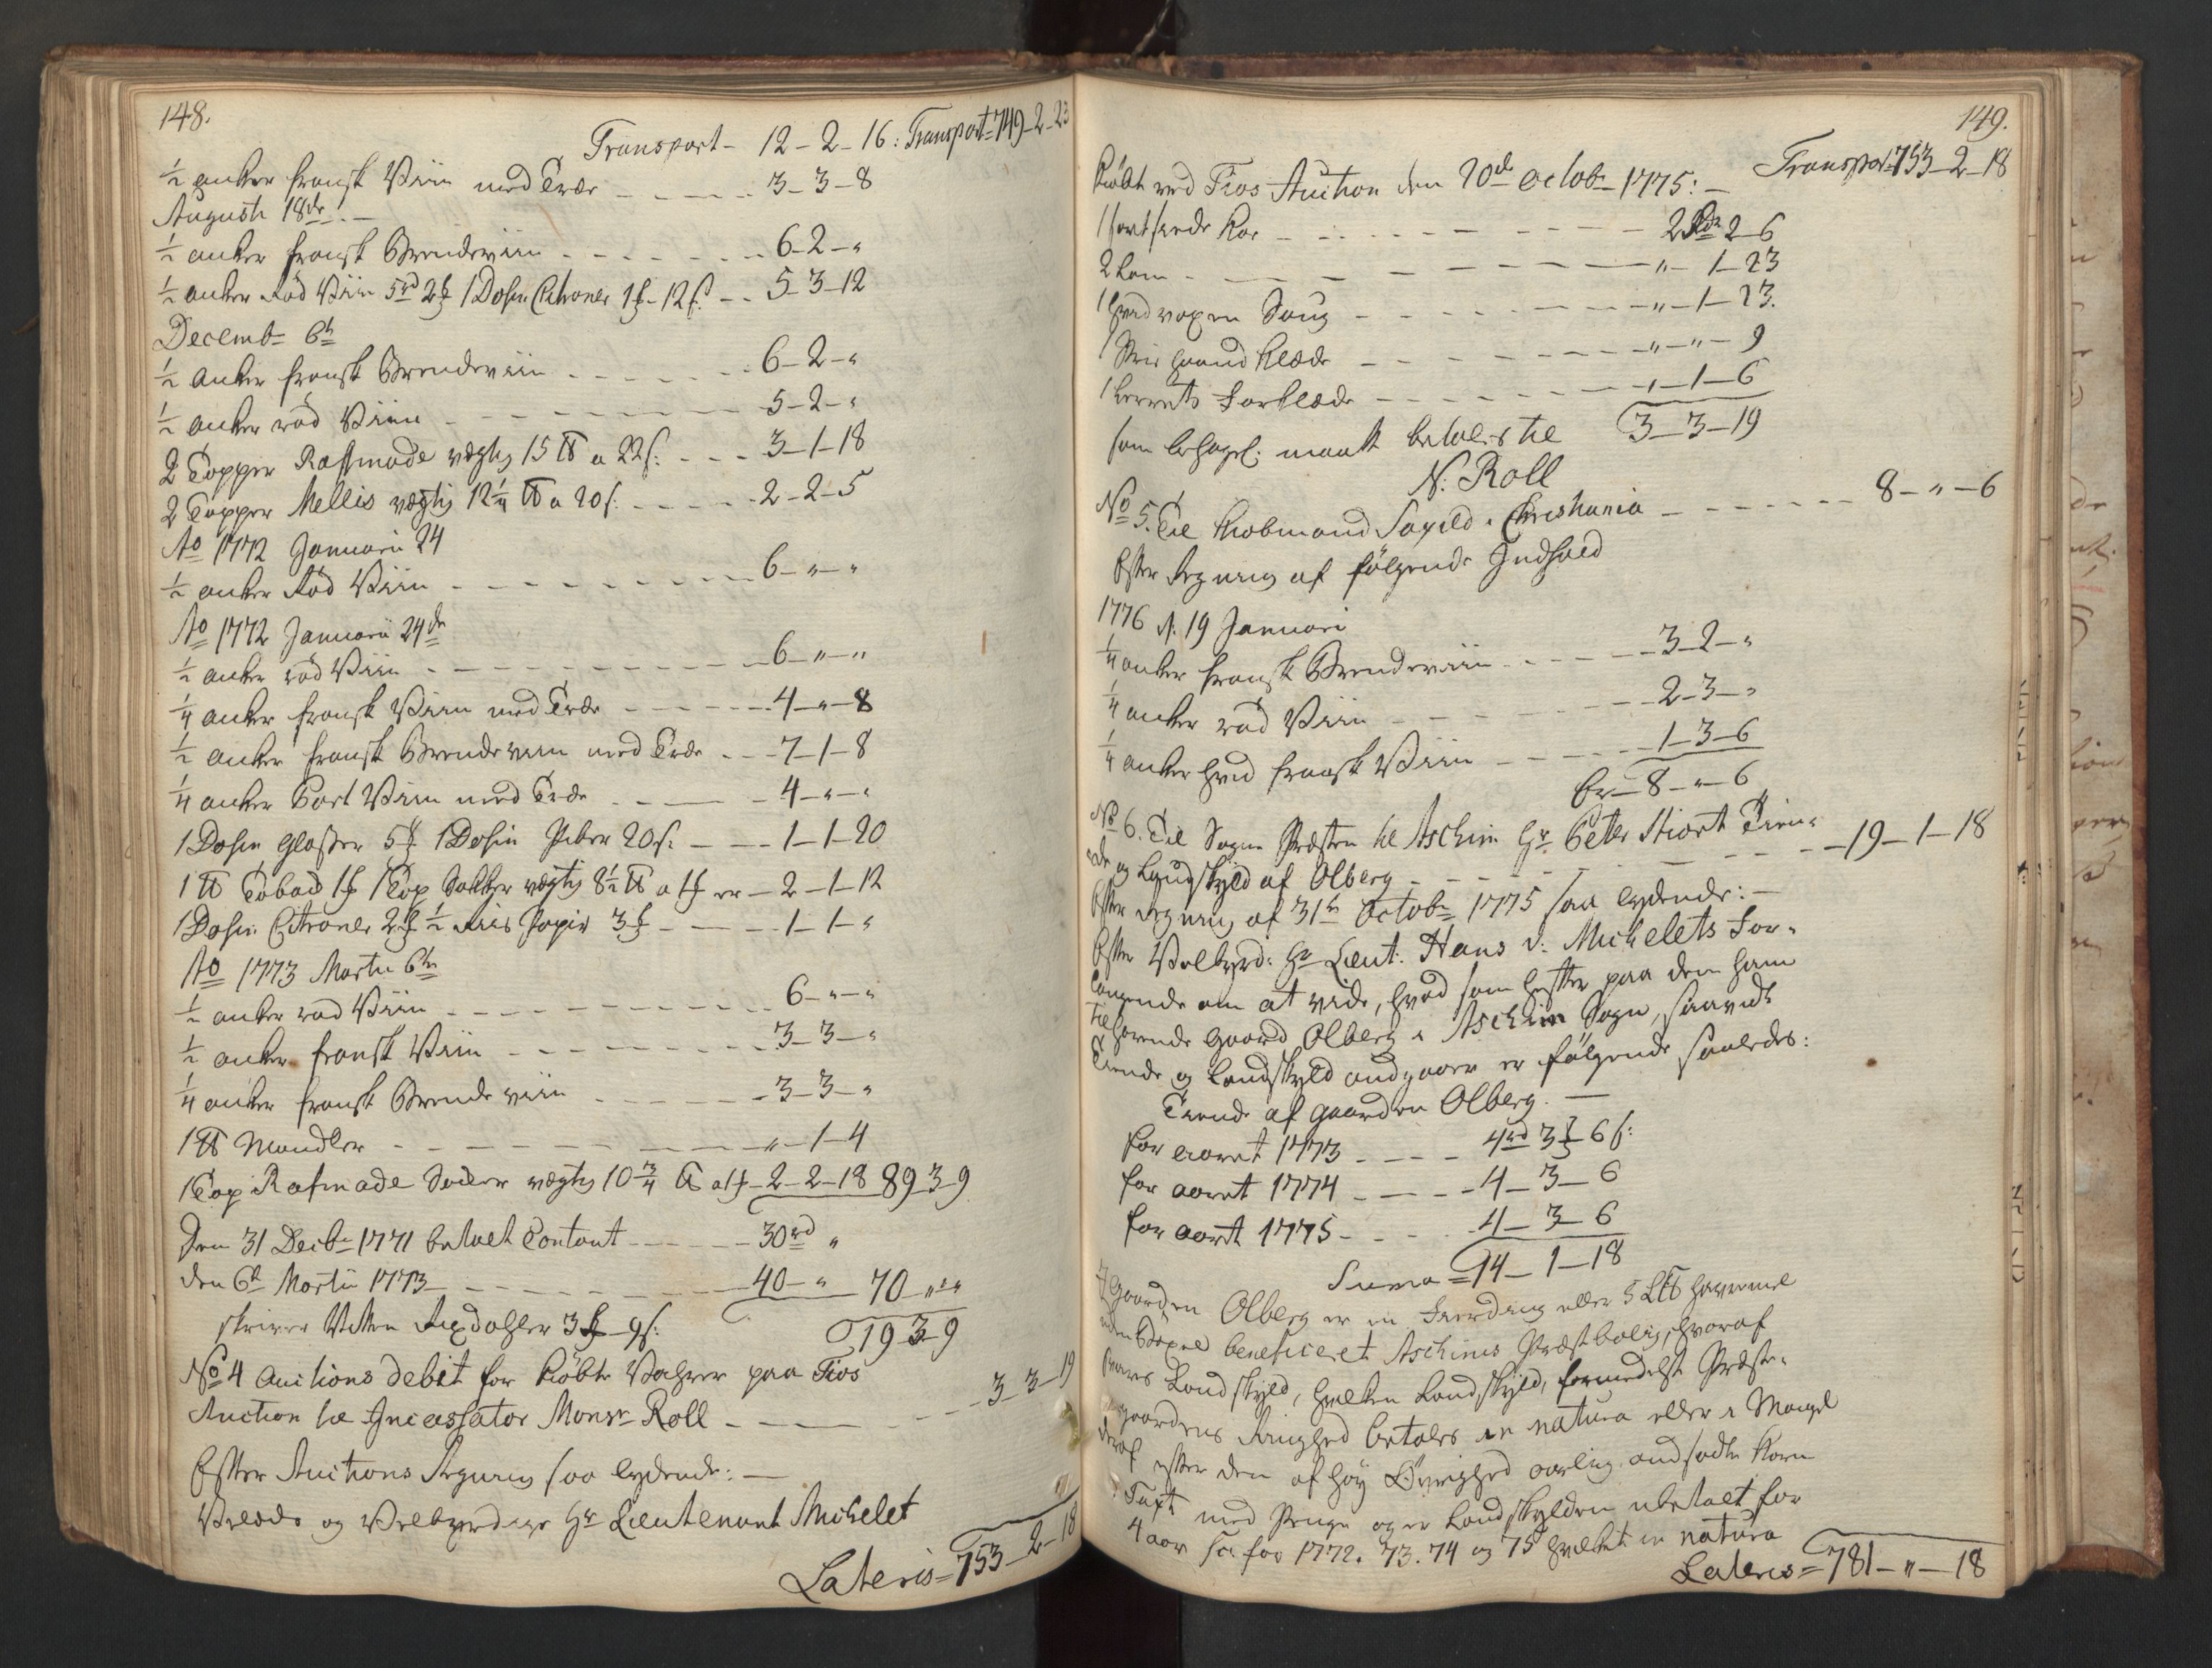 148.
Transport - 12 - 2 - 16: Transport = 749 - 2 - 23
½ anker fransk Viin med Træe - - - - 3 - 3 - 8
Augusti 18de: -
½ anker fransk Brendeviin - - - - - - 6 - 2 - "
½ anker Rød Viin 5rd 2 1 Dosin Citroner 1 - 12 s. - - 5 - 3 - 12
Decemb= 6te
½ anker fransk Brendeviin - - - - - 6 - 2 - "
½ anker rød Viin - - - - - - 5 - 2 - "
2 Topper Raffinade vægtig 15 ℔ a 22 s. - - - 3 - 1 - 18
2 Topper Mellis vægtig 12¼ ℔ a 20 s. - - - - 2 - 2 - 5
Ao 1772 Januarii 24
½ anker Rød Viin - - - - - - 6 - " - "
Ao 1772 Januarii 24de
½ anker rød Viin - - - - - - 6 - " - "
¼ anker fransk Viin med Træe - - - - 4 - " - 8
½ anker fransk Brendeviin med Træe - - - 7 - 1 - 8
¼ anker Port Viin med Træe - - - 4 - " - "
1 Dosin Glasser 5 1 Dosin Piber 20 s. - - - 1 - 1 - 20
1 ℔ Toback 1 1 Top Sukker vægtig 8½ ℔ a 1 er - 2 - 1 - 12
1 Dosin Citroner 2 ½ Riis Papir 3 - - - - 1 - 1 - "
Ao 1773 Martii 6te
½ anker rød Viin - - - - - - 6 - " - "
½ anker fransk Viin - - - - - - 3 - 3 - "
¼ anker fransk Brendeviin - - - - - 3 - 3 - "
1 ℔ Mandler - - - - - - " - 1 - 4
1 Top Rafinade Sucker vægtig 10¾ ℔ a 1 - 2 - 2 - 18 89 - 3 - 9
Den 31 Decbr 1771 betalt Contant - - - - 30rd "
den 6te Martii 1773 - - - - - 40 - " 70 - " - "
skriver Nitten Rixdahler 3 - 9 s. 19 - 3 - 9
No 4 Auctions debit for kiøbte Vahrer paa Fios
Auction til Incassator Monsr Roll - - - - - 3 - 3 - 19
Efter Auctions Regning saa lydende: -
Velædle og Velbyrdige Hr Lieutenant Michelet
Lateris = 753 - 2 - 18
149.
Transport = 753 - 2 - 18
Kiøbt ved Fios Auction den 20de Octob= 1775: -
1 sort siede Koe - - - - - - 2 Rdr 2 - 6
2 Lam - - - - - - " - 1 - 23
1 hvid voxen Soug - - - - - " - 1 - 23.
1 Strie Haandklæde - - - - - " - " - 9
1 Lerrets Forklæde - - - - - " - 1 - 6
som behagel. maatte betales til 3 - 3 - 19
N. Roll
No 5. Til Kiøbmand i Christiania - - - - 8 - " - 6
Efter Regning af følgende Indhold
1776 d. 19 Januari
¼ anker fransk Brendeviin - - - - - 3 - 2 - "
¼ anker rød Viin - - - - - 2 - 3 - "
¼ anker hvid fransk Viin - - - - 1 - 3 - 6
er - 8 - " - 6
No 6. Til Sogne Præsten til Aschim Hr Peter Stiort Tien-
de og Landskyld af Olberg - - - - - - 19 - 1 - 18
Efter Regning af 31te Octob= 1775 saa lydende: -
Efter Velbyrd: Hr Lieut: Hans v: Michelets For-
langende om at vide, hvad som hefter paa den ham
tilhørende Gaard Olberg i Aschim Sogn, saavidt
Tiende og Landskyld angaaer er følgende saaledes:
Tiende af Gaarden Olberg. -
for aaret 1773 - - - - 4rd 3 6 s:
for aaret 1774 - - - - 4 - 3 - 6
for aaret 1775 - - - - 4 - 3 - 6
Suma = 14 - 1 - 18
Gaarden Olberg er en Fierding eller 5 L℔ havremel
uden Bøxel beneficeret Aschims Præstbolig, hvoraf
svares Landskyld, hvilken Landskyld, formedelst Præste-
gaardens Ringhed betales in natura eller i Mangel
deraf efter den af høy Øvrighed aarlig ansadte Korn
Taxt med Penge og er Landskylden ubetalt for
4 aar sc: for 1772. 73. 74 og 75 hvilket in natura
Lateris = 781 - " - 18